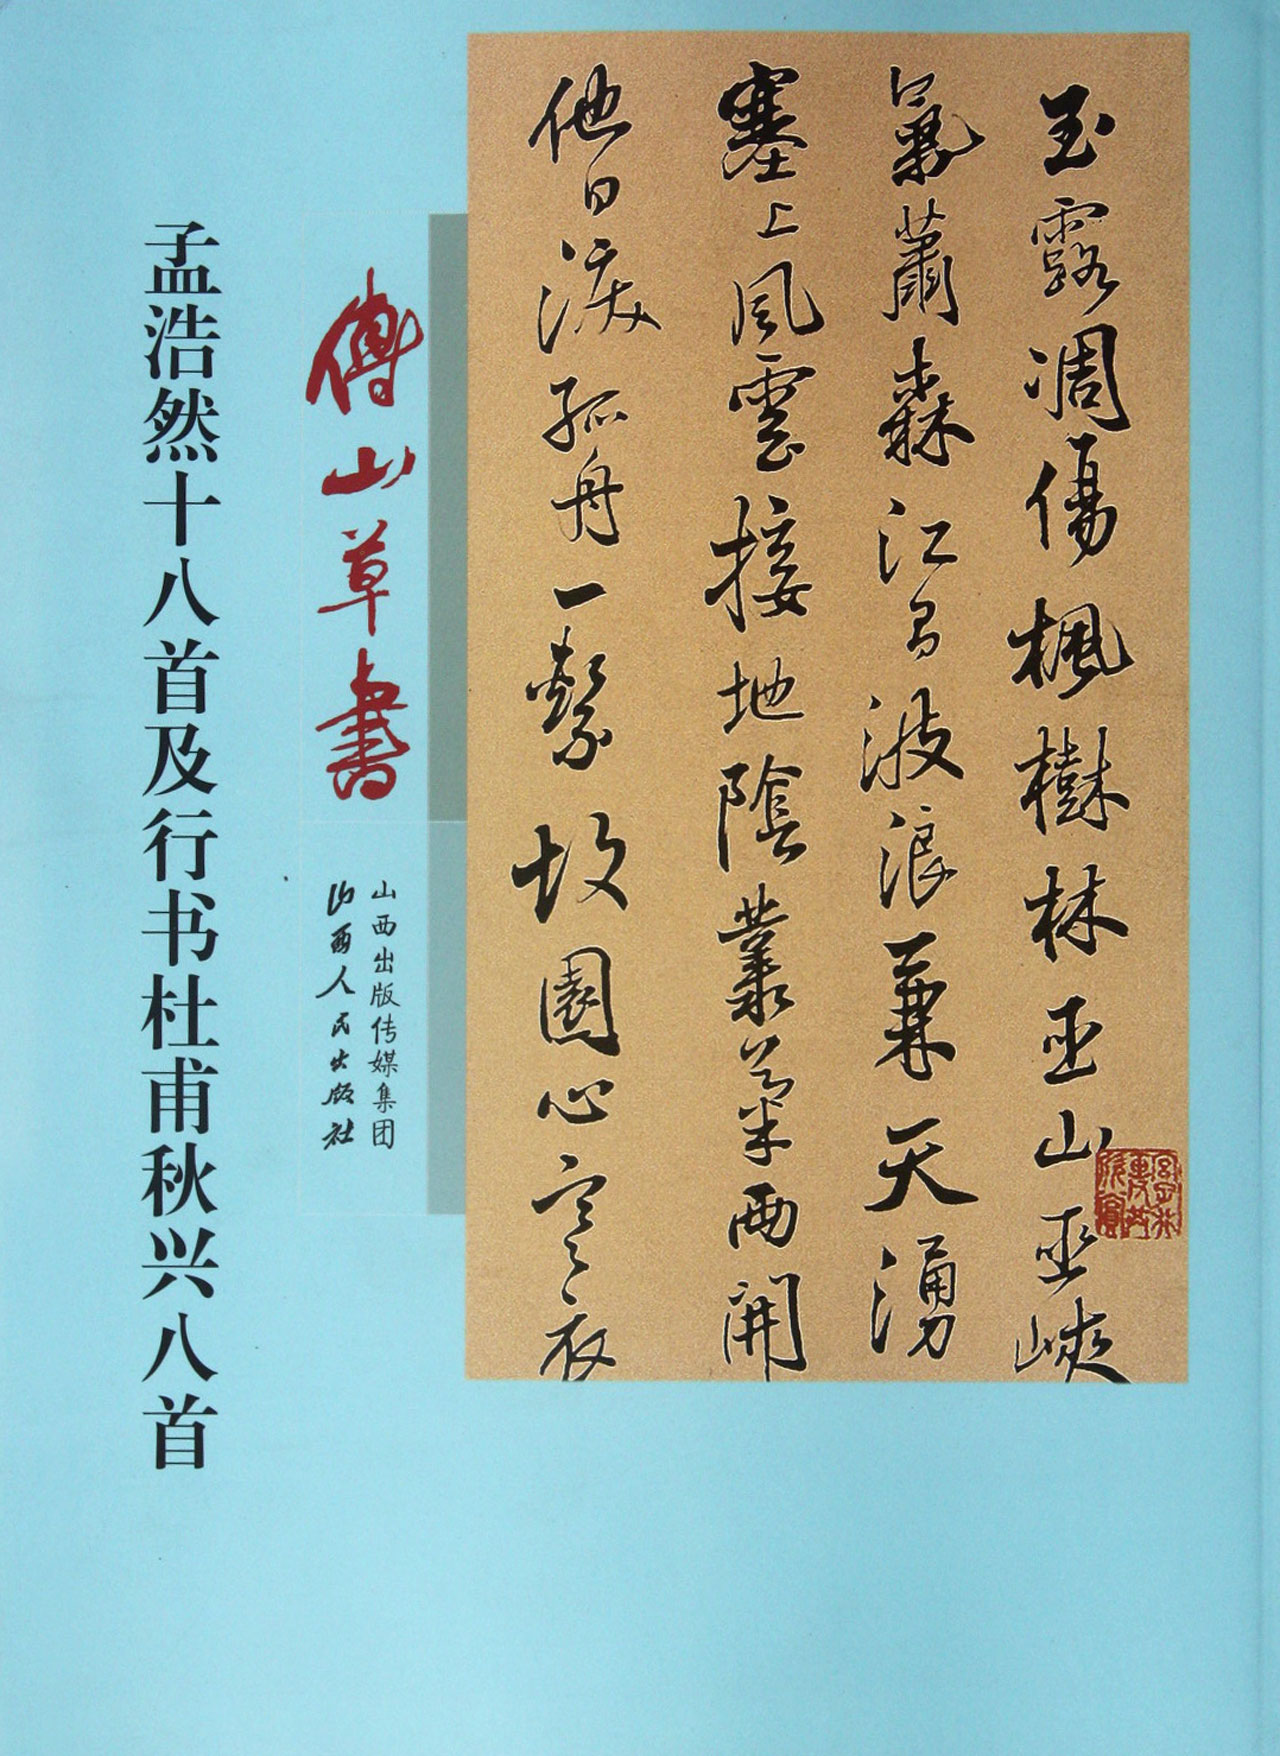 玉露凋傷楓樹林巫山巫峽
氣蕭森江間波浪兼天湧
塞上風雲接地陰叢菊兩開
他日淚孤舟一繫故園心寒衣
傅山草書
山西出版传媒集团
山西人民出版社
孟浩然十八首及行书杜甫秋兴八首